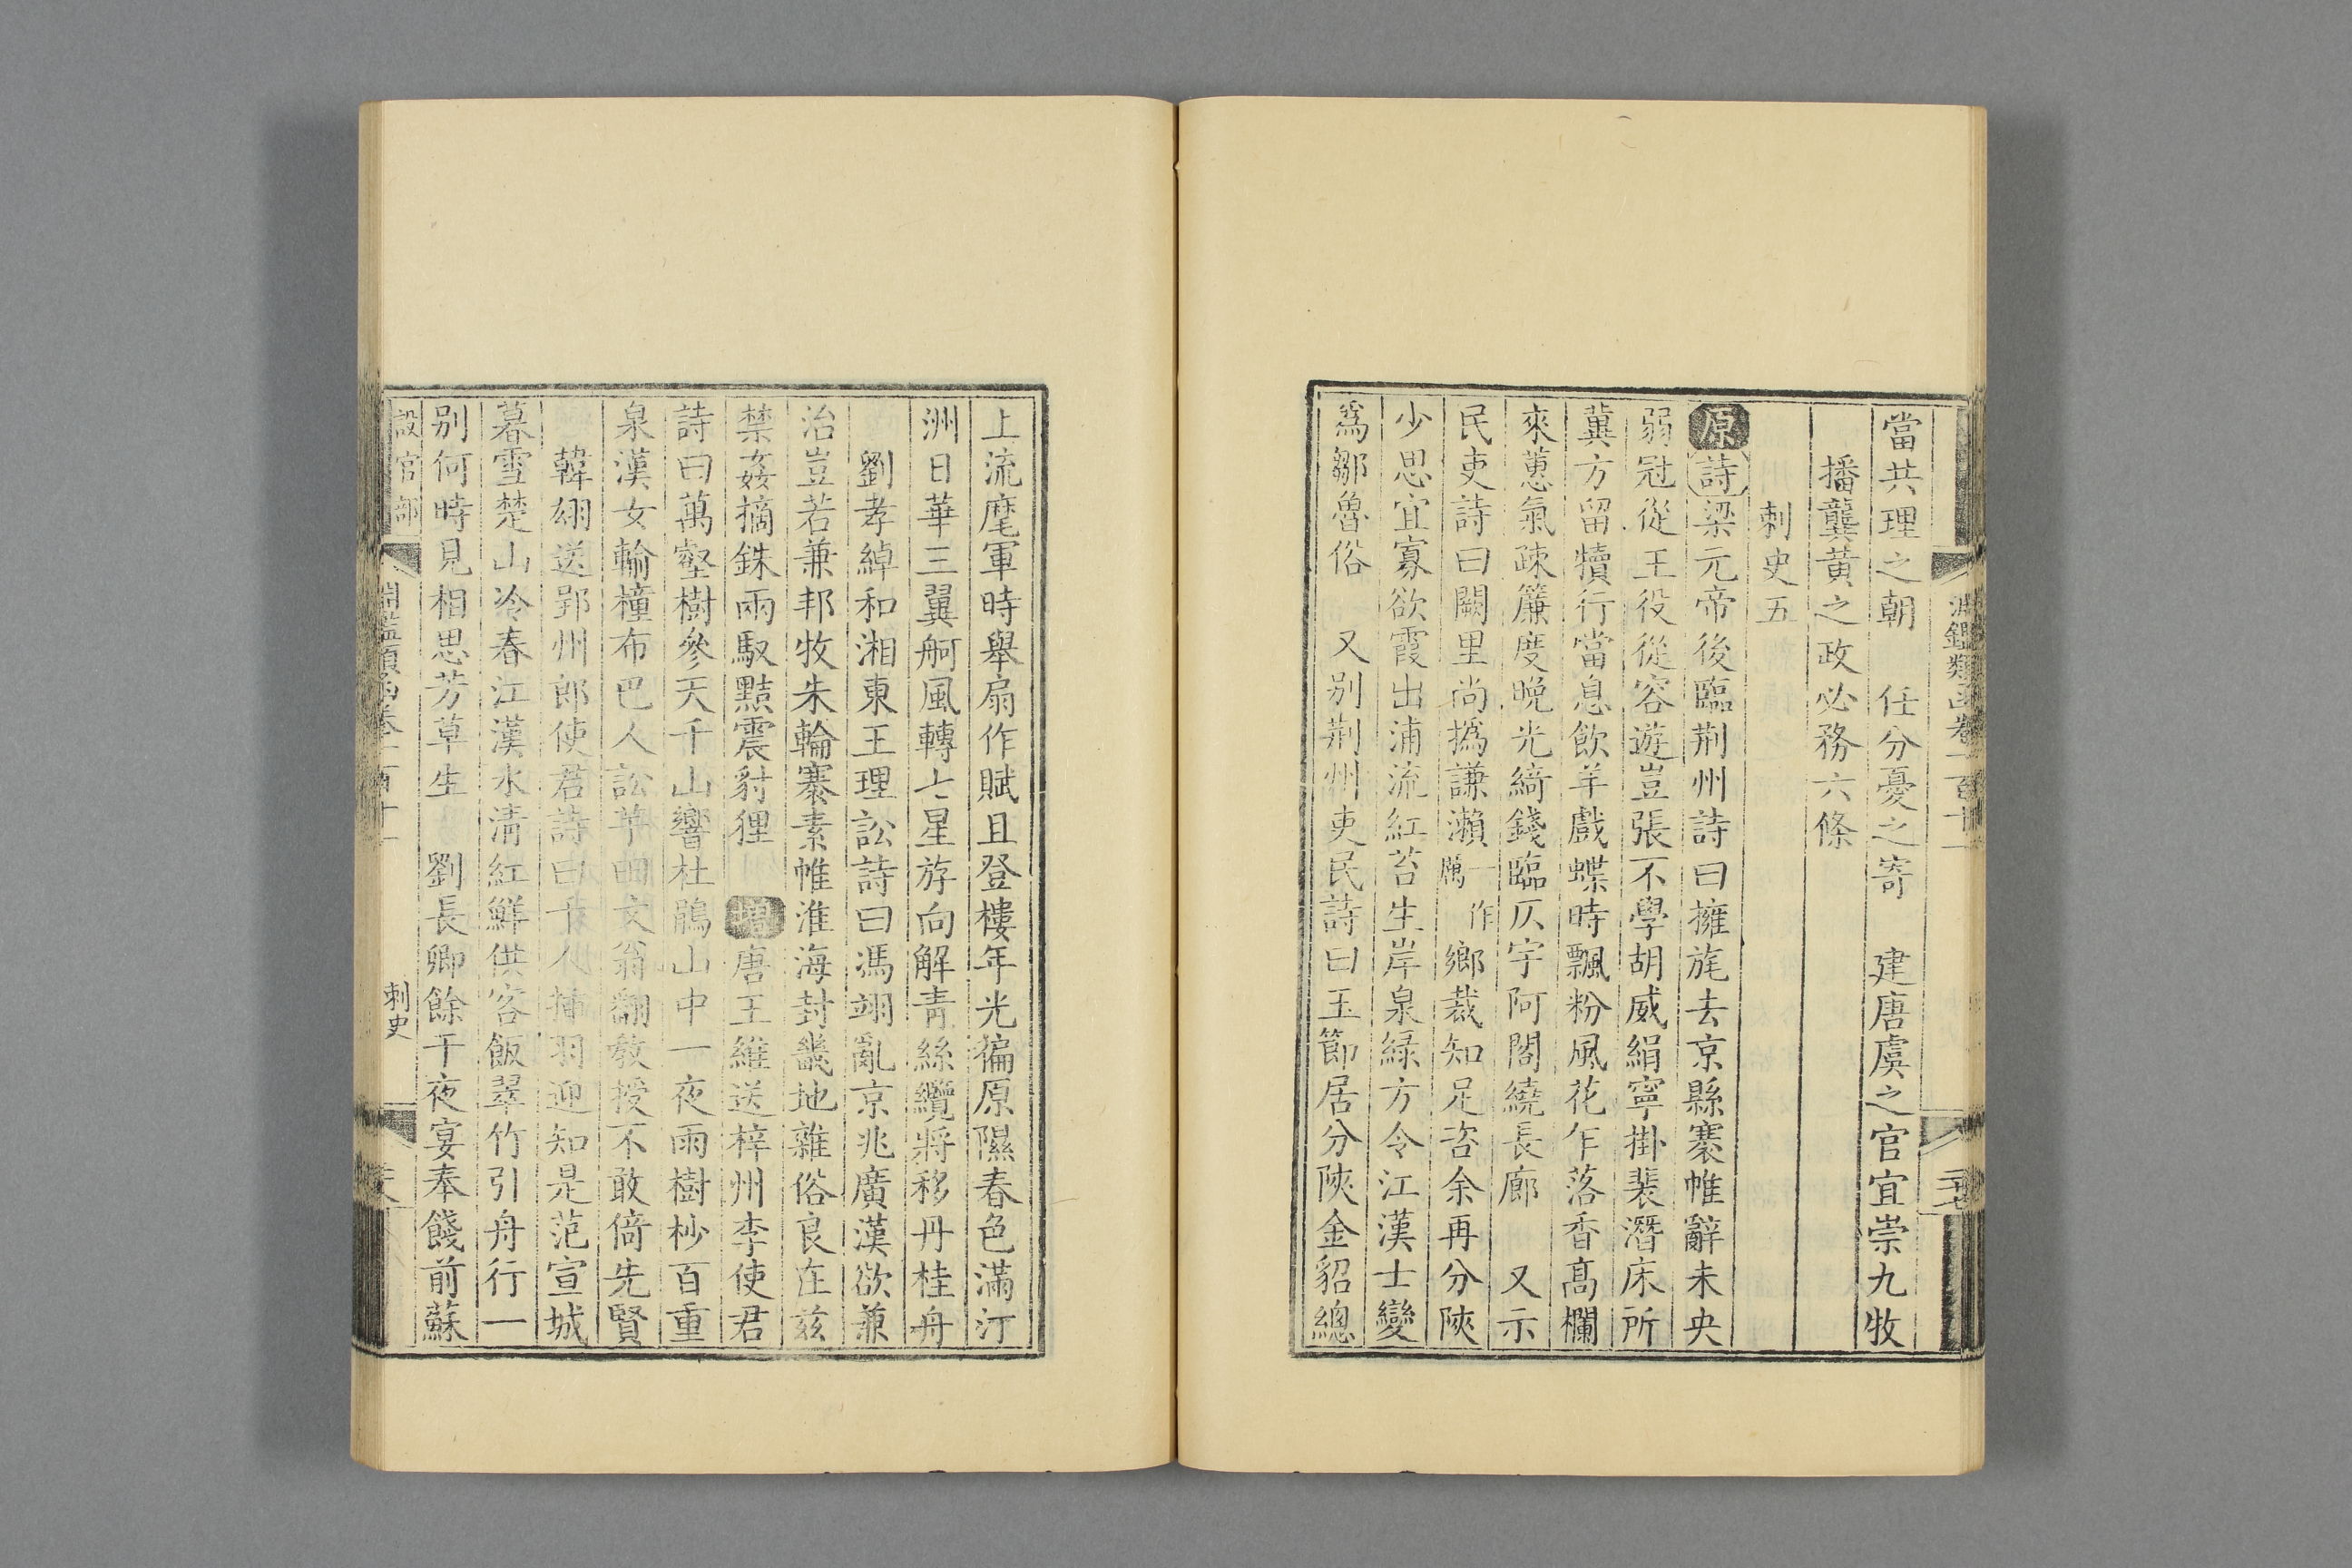 淵鑑類函卷一百十一
當共理之朝　任分憂之寄　建唐虞之官宜崇九牧
播龔黃之政必務六條
刺史五
原詩梁元帝後臨荆州詩曰擁旄去京縣褰帷辭未央
弱冠從王役從容遊豈張不學胡威絹寧掛裴潛床所
冀方留犢行當息飲羊戲蝶時飄粉風花乍落香高欄
來蕙氣疎簾度晚光綺錢臨仄宇阿閣繞長廊　又示
民吏詩曰闕里尚撝謙瀨一作厲鄉裁知足咨余再分陝
少思宜寡欲霞出浦流紅苔生岸泉綠方令江漢士變
爲鄒魯俗　又别荆州吏民詩曰玉節居分陝金貂總
上流麾軍時舉扇作賦且登樓年光徧原隰春色滿汀
洲日華三翼舸風轉七星斿向解青絲纜將移丹桂舟
劉孝綽和湘東王理訟詩曰馮翊亂京兆廣漢欲兼
治豈若兼邦牧朱輪褰素帷淮海封畿地雜俗良在兹
禁姦摘銖兩馭黠震豺狸　增唐王維送梓州李使君
詩曰萬壑樹參天千山響杜鵑山中一夜雨樹杪百重
泉漢女輸橦布巴人訟芋田文翁翻教授不敢倚先賢
韓翃送郢州郎使君詩曰千人插羽迎知是范宣城
暮雪楚山冷春江漢水清紅鮮供客飯翠竹引舟行一
别何時見相思芳草生　劉長卿餘干夜宴奉餞前蘇
設官部
淵鑑類函卷一百十一
刺史